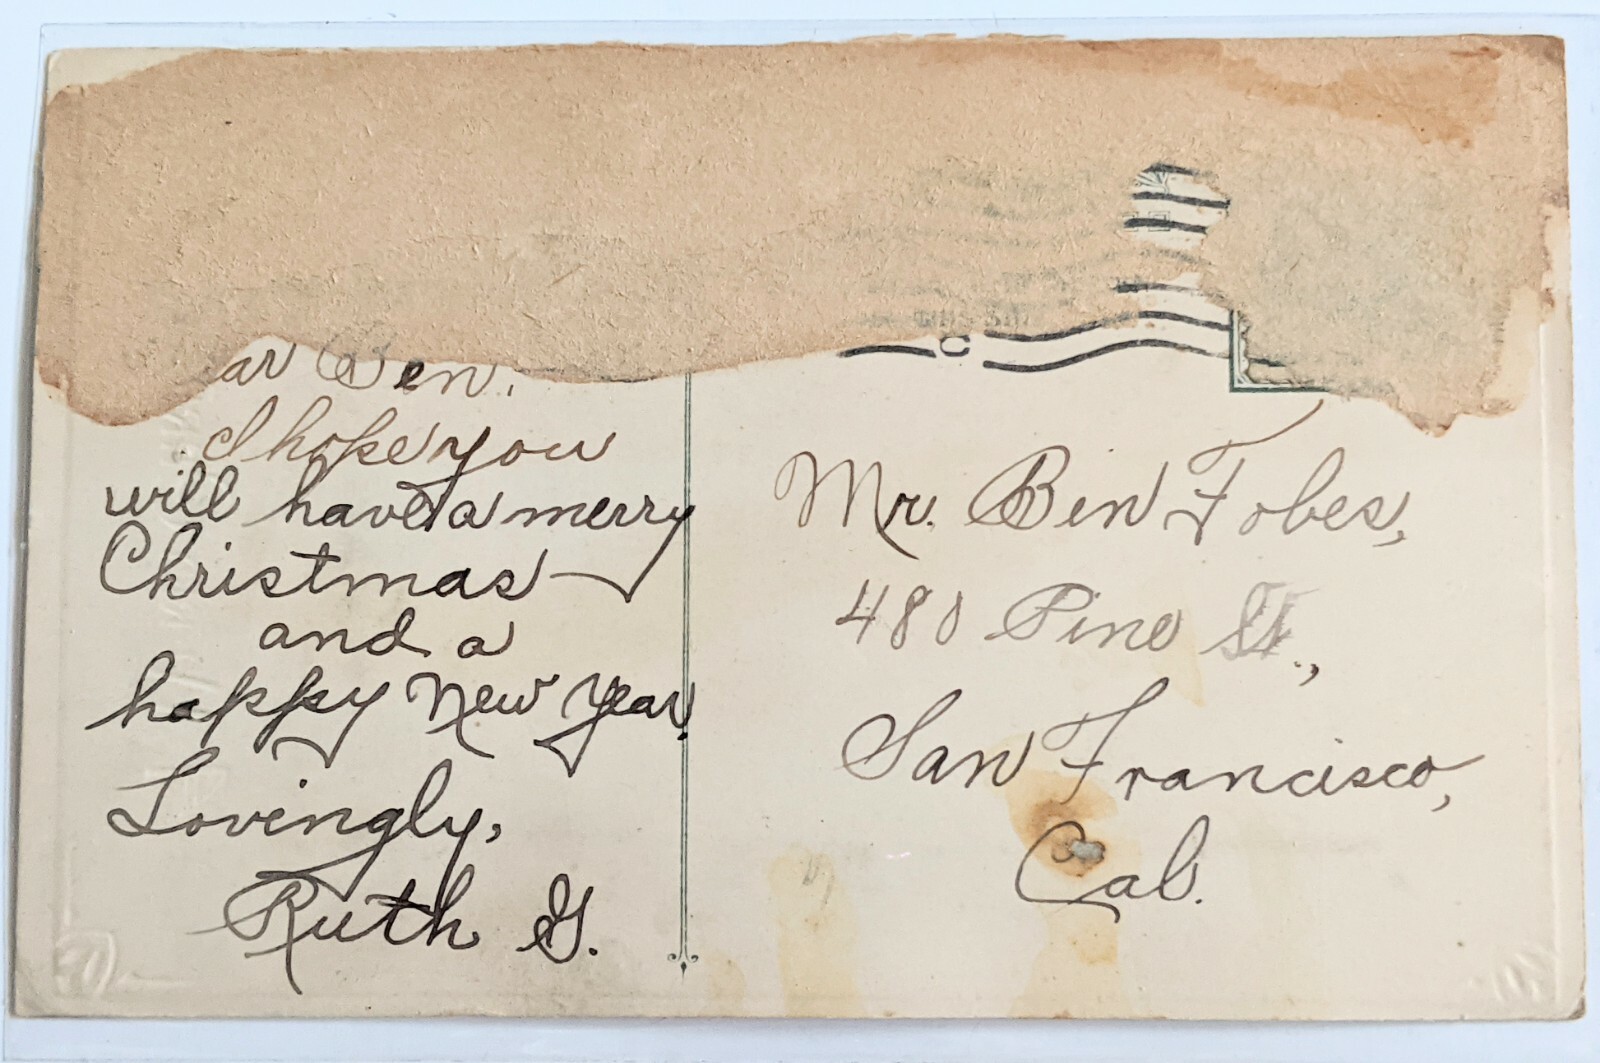 ar Ben,
I hope you
will have a merry
Christmas
and a
happy New Year.
Lovingly,
Ruth G.
Mr. Ben Fobes,
480 Pine St.,
San Francisco,
Cal.